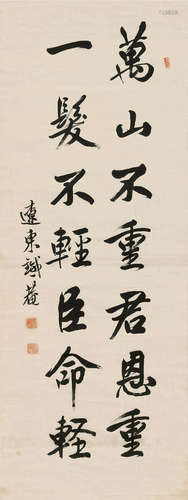 萬山不重君恩重
一髮不輕臣命軽
遼東鐵菴